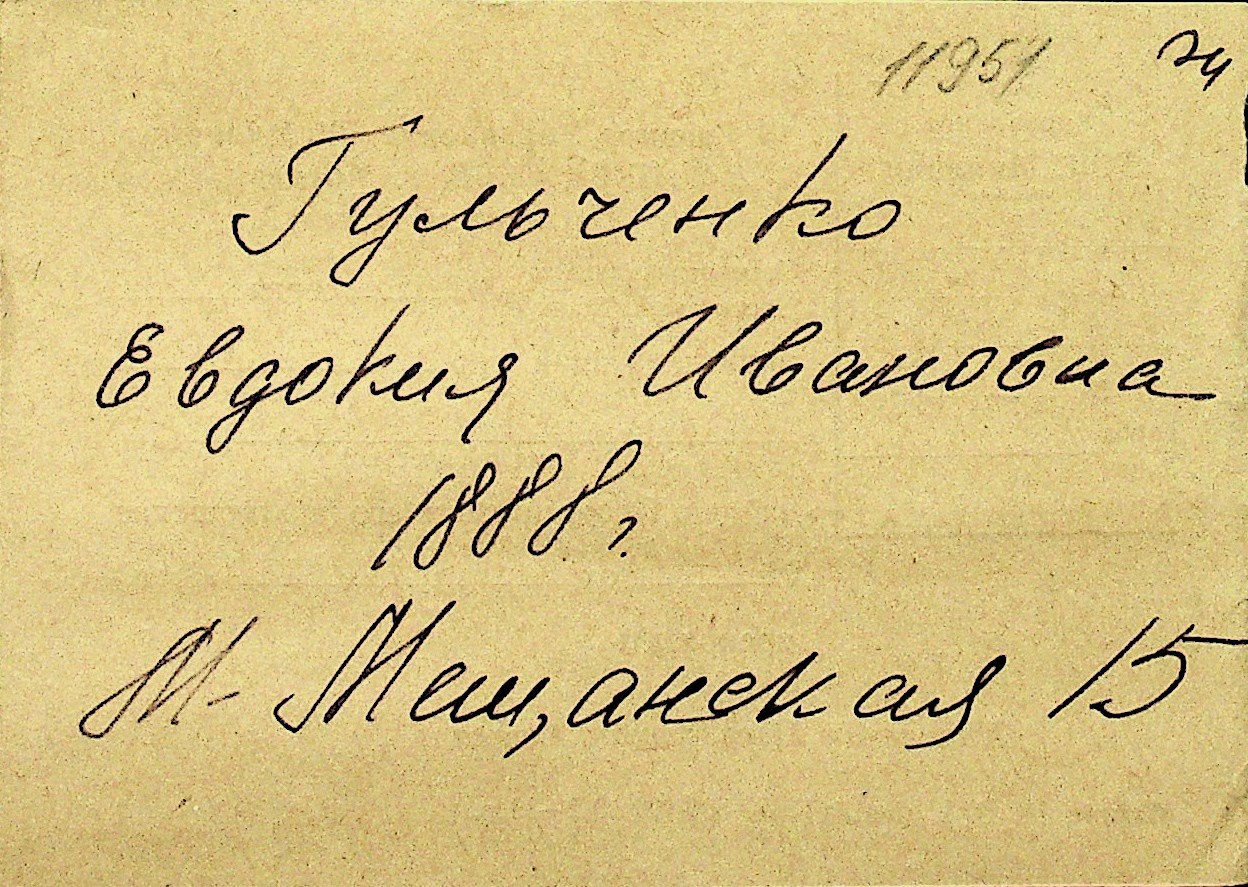 11951
Гульченко
Евдокия Ивановна
1888 г.
М-Мещанская 15